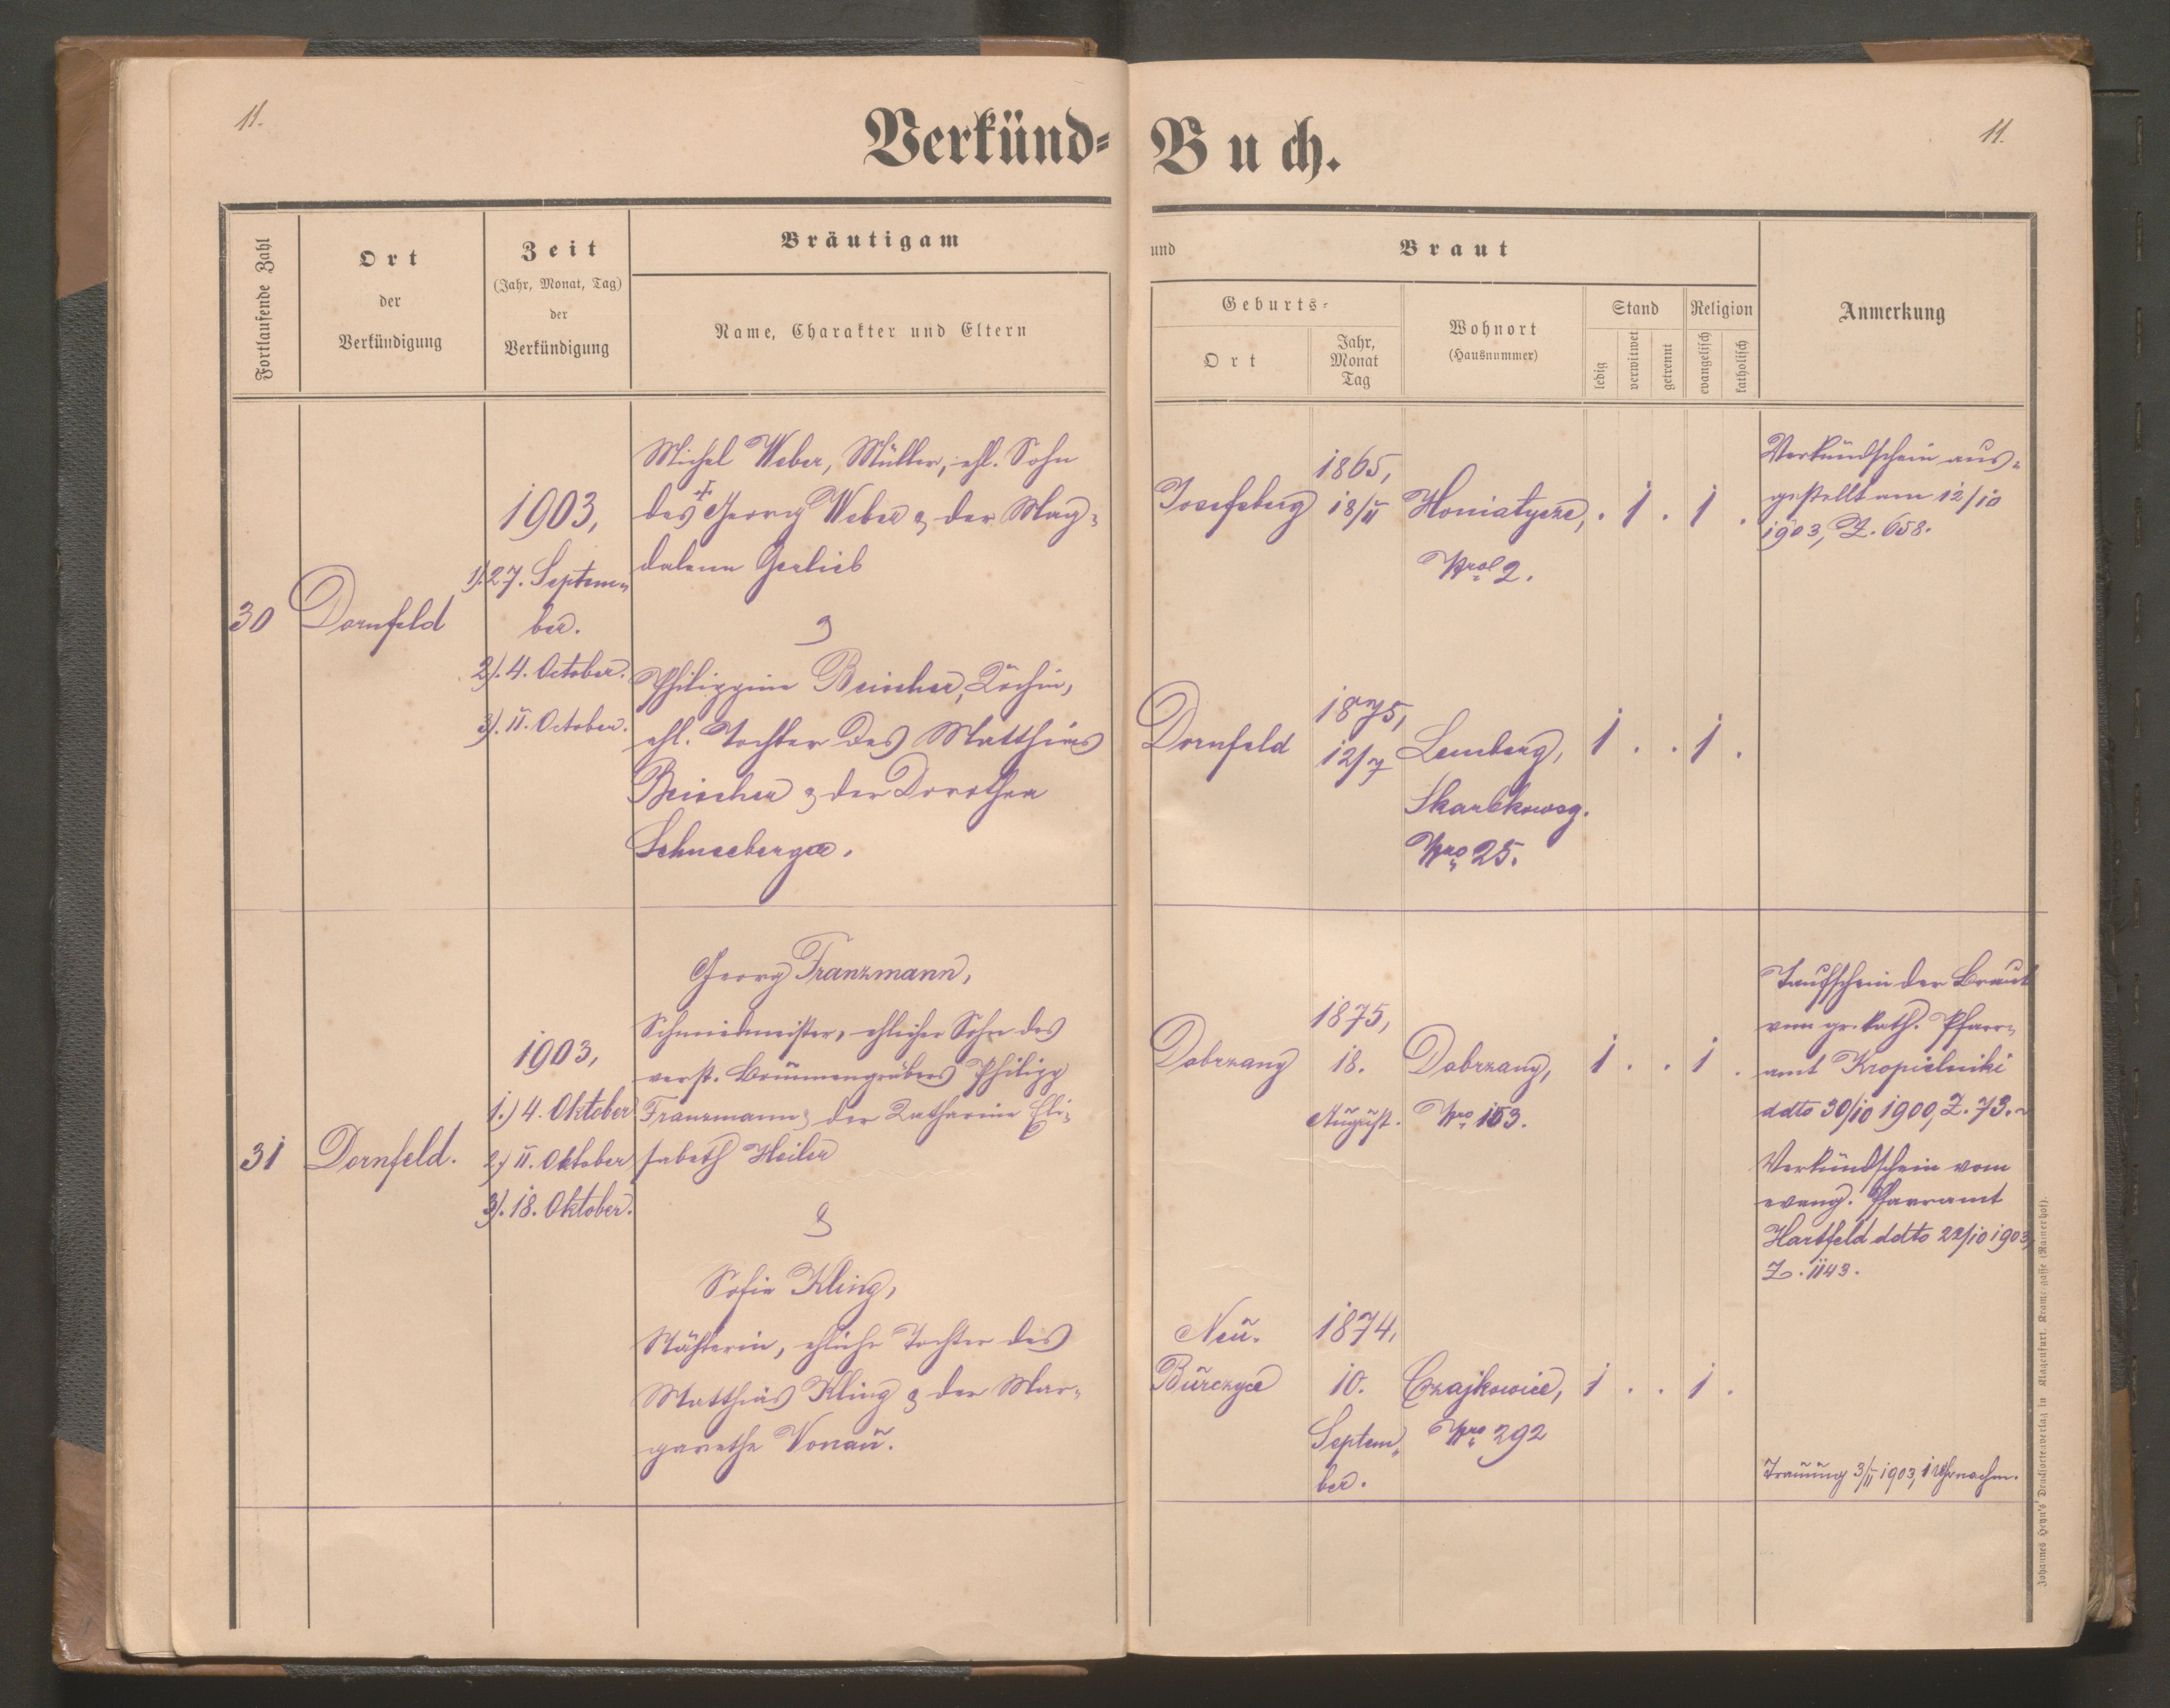 11.
Verkünd-
Buch.
11.
Fortlaufende Zahl
Ort
der
Verkündigung
Zeit
(Jahr, Monat, Tag)
der
Verkündigung
Bräutigam
Name, Charakter und Eltern
und
Braut
Geburts-
Ort
Jahr,
Monat
Tag
Wohnort
(Hausnummer)
Stand
ledig
verwitwet
getrennt
Religion
evangelisch
katholisch
Anmerkung
30
Dornfeld
1903,
1). 27. Septem-
ber.
2). 4. October.
3). 11. October.
Michel Weber, Müller, ehl. Sohn
des + Georg Weber & der Mag-
dalena Gerlieb
&
Philippine Beischer, Köchin,
ehl. Tochter des Matthias
Beischer & der Dorothea
Schneeberger.
Josefsberg
1865,
18/11
Honiatycze,
Nro 2.
. 1 . 1 .
Verkündschein aus-
gestellt am 12/10
1903, Z. 658.
Dornfeld
1875,
12/7
Lemberg,
Skarbkowsg.
Nro 25.
1 . . 1 .
31
Dornfeld.
1903,
1.) 4. Oktober
2.) 11. Oktober
3). 18. Oktober.
Georg Franzmann,
Schmiedmeister, ehlicher Sohn des
verst. Brunnengräbers Philipp
Franzmann & der Katharina Eli-
sabeth Heiler
&
Sofie Kling,
Nähterin, ehliche Tochter des
Matthias Kling & der Mar-
garethe Vonau.
Dobrzany
1875,
18.
August.
Dobrzany,
Nro 153.
1 . . 1 .
Taufschein der Braut
vom gr. kath. Pfarr-
amt Kropielniki
ddto 30/10 1900, Z. 73.
Verkündschein vom
evang. Pfarramt
Hartfeld ddto 22/10 1903,
Z. 1143.
Neu-
Burczyce
1874,
10.
Septem-
ber.
Czajkowice,
Nro 292
1 . . 1 .
Trauung 3/11 1903, 1 Uhr nachm.
Johannes Heyn's Devaliortenverlag in Klagenfurt, Kramergasse (Rainerhof).